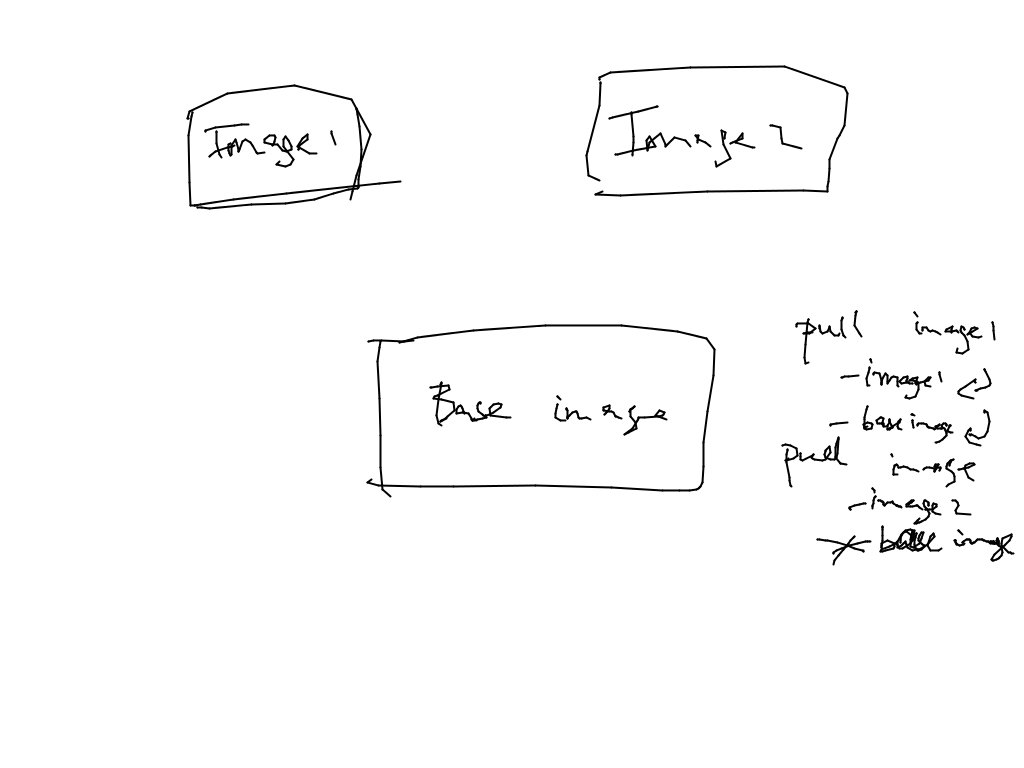 Image 1
Image 2
Base image
pull image1
- image1
- base image
pull image
- image 2
- base image